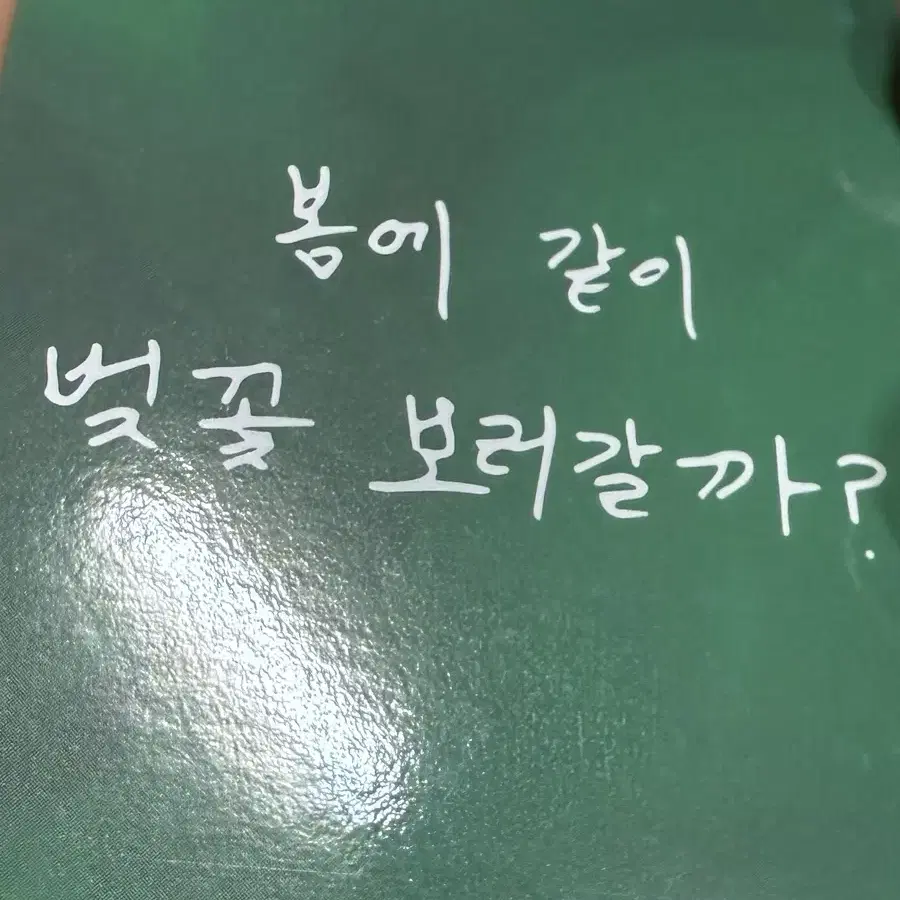 봄에 같이
벚꽃 보러갈까?